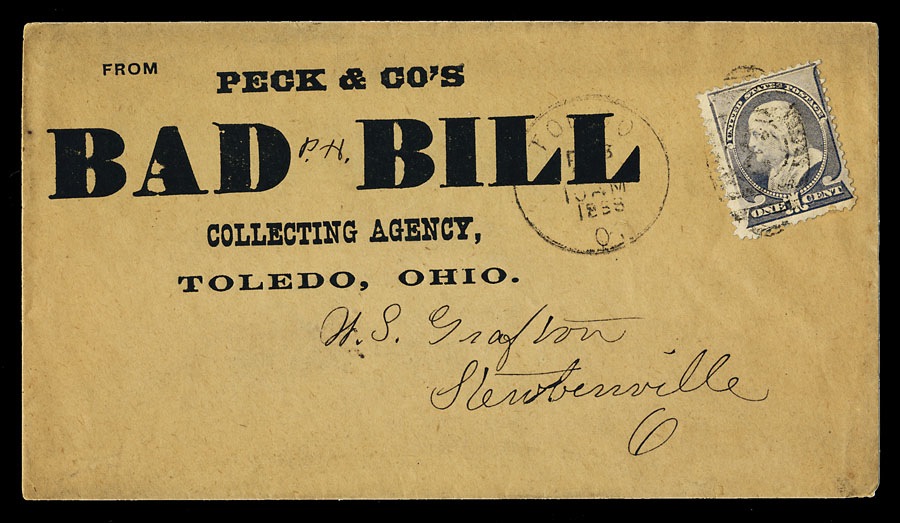 FROM
PECK & CO'S
BAD P.H. BILL
COLLECTING AGENCY,
TOLEDO, OHIO.
TOLEDO
10 AM
1888
O.
UNITED STATES POSTAGE
ONE 1 CENT
W. S. Grafton
Steubenville
O